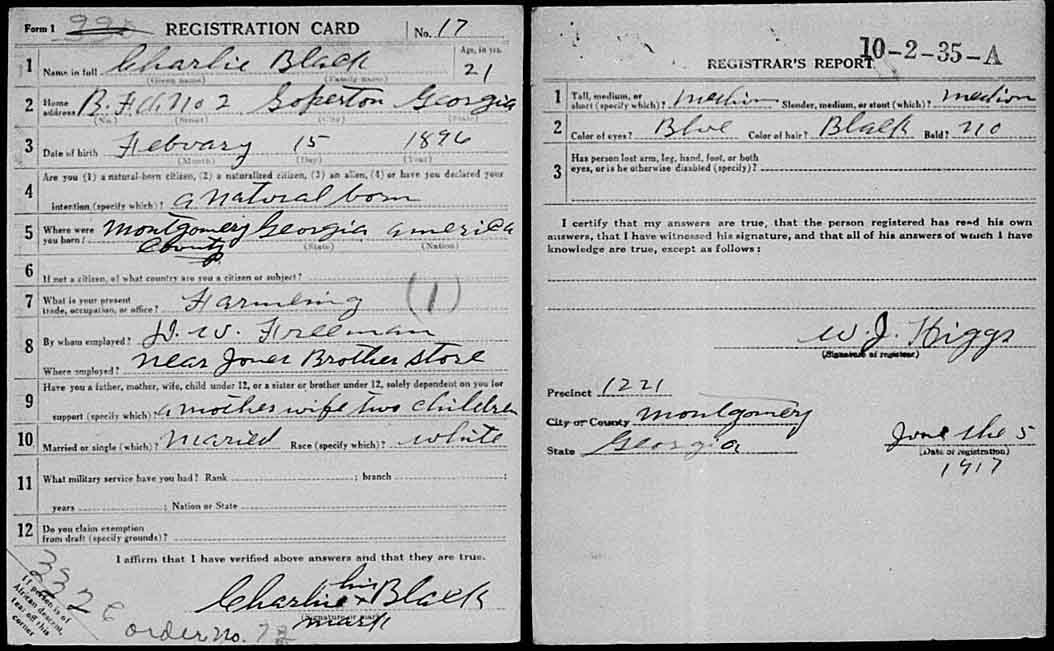 Form 1 REGISTRATION CARD No. 17
1 Name in full Charlie Black Age, in yrs. 21
(Given name) (Family name)
2 Home address R. Fd. No 2 Soperton Georgia
(No.) (Street) (City) (State)
3 Date of birth Febuary 15 1896
(Month) (Day) (Year)
Are you (1) a natural-born citizen, (2) a naturalized citizen, (3) an alien, (4) or have you declared your
4 intention (specify which)? a natural born
5 Where were you born? Montgomery Georgia america
County (State) (Nation)
6 If not a citizen, of what country are you a citizen or subject?
7 What is your present trade, occupation, or office? Farmeing (1)
8 By whom employed? J. W. Freeman
Where employed? near Jones Brother store
Have you a father, mother, wife, child under 12, or a sister or brother under 12, solely dependent on you for
9 support (specify which)? a mother wife two children
10 Married or single (which)? Maried Race (specify which)? white
11 What military service have you had? Rank ; branch ;
years ; Nation or State
12 Do you claim exemption from draft (specify grounds)?
I affirm that I have verified above answers and that they are true.
his
Charlie x Black
(Signature or mark)
mark
If person is of African descent, tear off this corner
order no.
10-2-35-A
REGISTRAR'S REPORT
1 Tall, medium, or short (specify which)? Medium Slender, medium, or stout (which)? medium
2 Color of eyes? Blue Color of hair? Black Bald? no
3 Has person lost arm, leg, hand, foot, or both eyes, or is he otherwise disabled (specify)?
I certify that my answers are true, that the person registered has read his own
answers, that I have witnessed his signature, and that all of his answers of which I have
knowledge are true, except as follows:
W. J. Higgs
(Signature of registrar)
Precinct 1221
City or County Montgomery
State Georgia
June the 5
(Date of registration)
1917